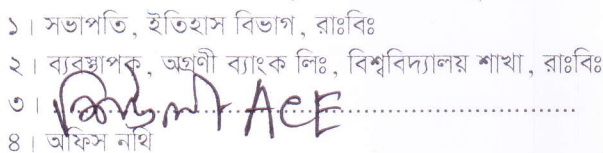 ১। সভাপতি, ইতিহাস বিভাগ, রাঃবিঃ
২। ব্যবস্থাপক, অগ্রণী ব্যাংক লিঃ, বিশ্ববিদ্যালয় শাখা, রাঃবিঃ
৩। ACE
৪। অফিস নথি